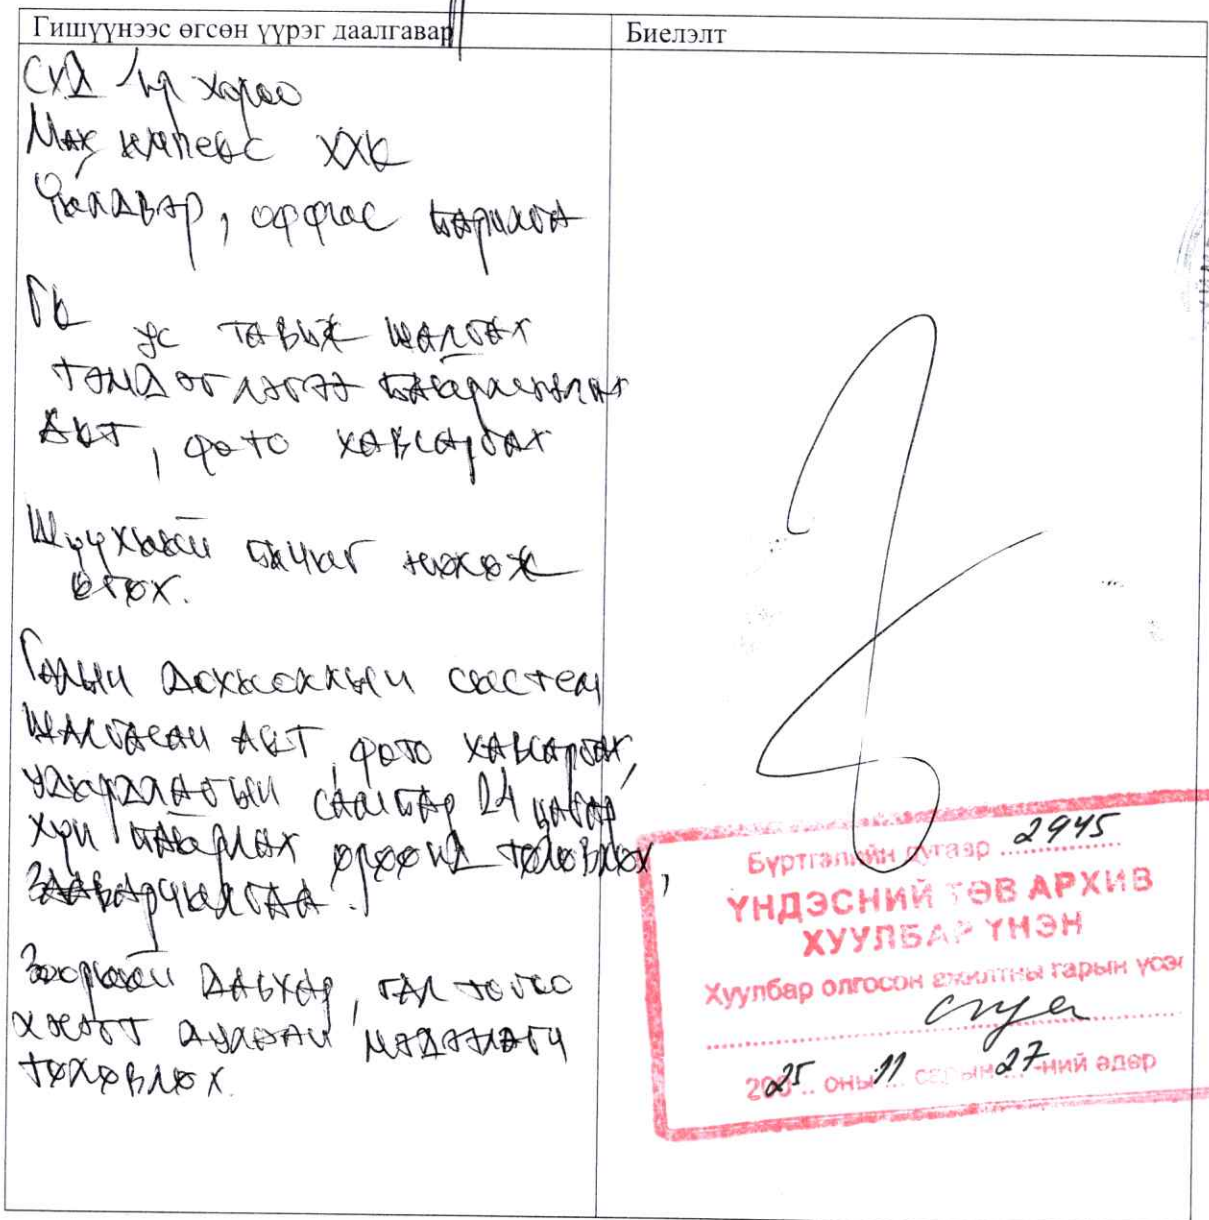 Гишүүнээс өгсөн үүрэг даалгавар
Биелэлт
СХД хороо
Мах импекс ХХК
Үйлдвэр, оффис барилга
ГК ус тавьж шалгах
тэмдэглэгээ байршуулах
Акт, фото хавсаргах
Шүүхийн бичиг нөхөж
өгөх.
Галын дохиоллын систем
шалгасан акт, фото хавсаргах,
удирдлагын самбар 24 цагаар
хүн байрлах өрөөнд төлөвлөх,
Зааварчилгаа.
Зоорийн давхар, гал тогоо
хэсэгт дулаан мэдээлэгч
төлөвлөх.
Бүртгэлийн дугаар 2945
ҮНДЭСНИЙ ТӨВ АРХИВ
ХУУЛБАР ҮНЭН
Хуулбар олгосон ажилтны гарын үсэг
2025 оны 11 сарын 27-ний өдөр